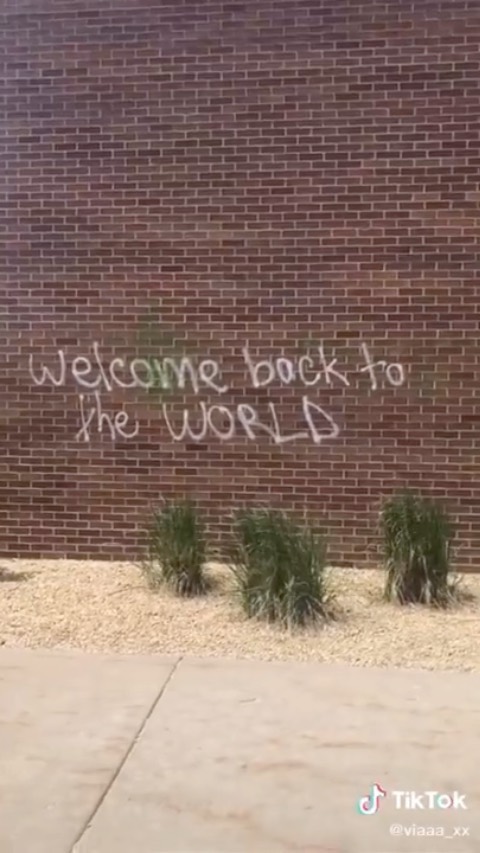 welcome back to
the WORLD
TikTok
@viaaa_xx